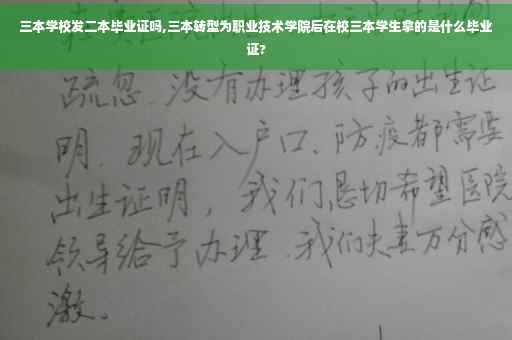 三本学校发二本毕业证吗,三本转型为职业技术学院后在校三本学生拿的是什么毕业
证?
疏忽、没有办理孩子的出生证
明、现在入户口、防疫都需要
出生证明，我们恳切希望医院
领导给予办理、我们夫妻万分感
激。